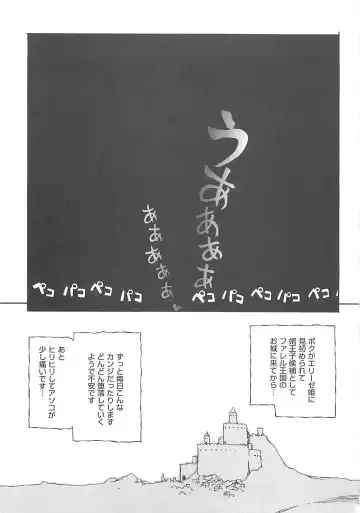 うあぁぁぁぁ
ああああぁ♥
ペコ パコ ペコ パコ
パコ ペコ パコ ペコ
ボクがエリーゼ姫に
見初められて
婿王子候補として
ファレル王国の
お城に来てから…
ずっと毎日こんな
カンジだったりします
どんどん堕落していく
ようで不安です
あと
ヒリヒリしてアソコが
少し痛いです…